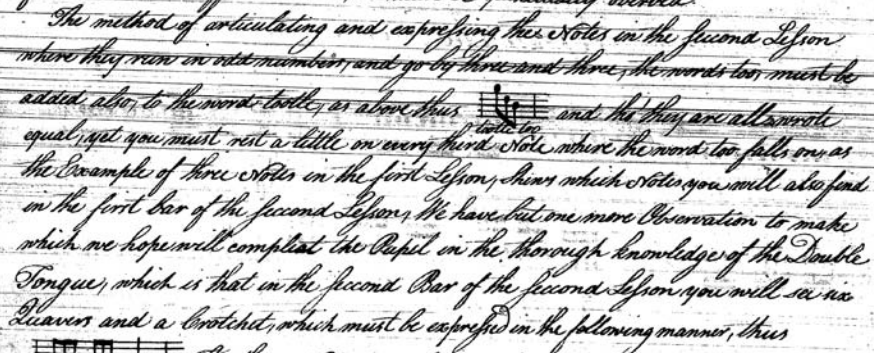 The method of articulating and expreſsing the Notes in the ſecond Leſson
where they run in odd numbers, and go by three and three, the words too, must be
added also, to the word tootle, as above thus and tho' they are all wrote
tootle too
equal, yet you must rest a little on every third Note where the word too falls on, as
the Example of three Notes in the first Leſson, shews which Notes you will also find
in the first bar of the ſecond Leſson, We have but one more Observation to make
which we hope will compleat the Pupil in the thorough knowledge of the Double
Tongue, which is that in the ſecond Bar of the ſecond Leſson you will see six
Quavers and a Crotchet, which must be expreſsed in the following manner, thus